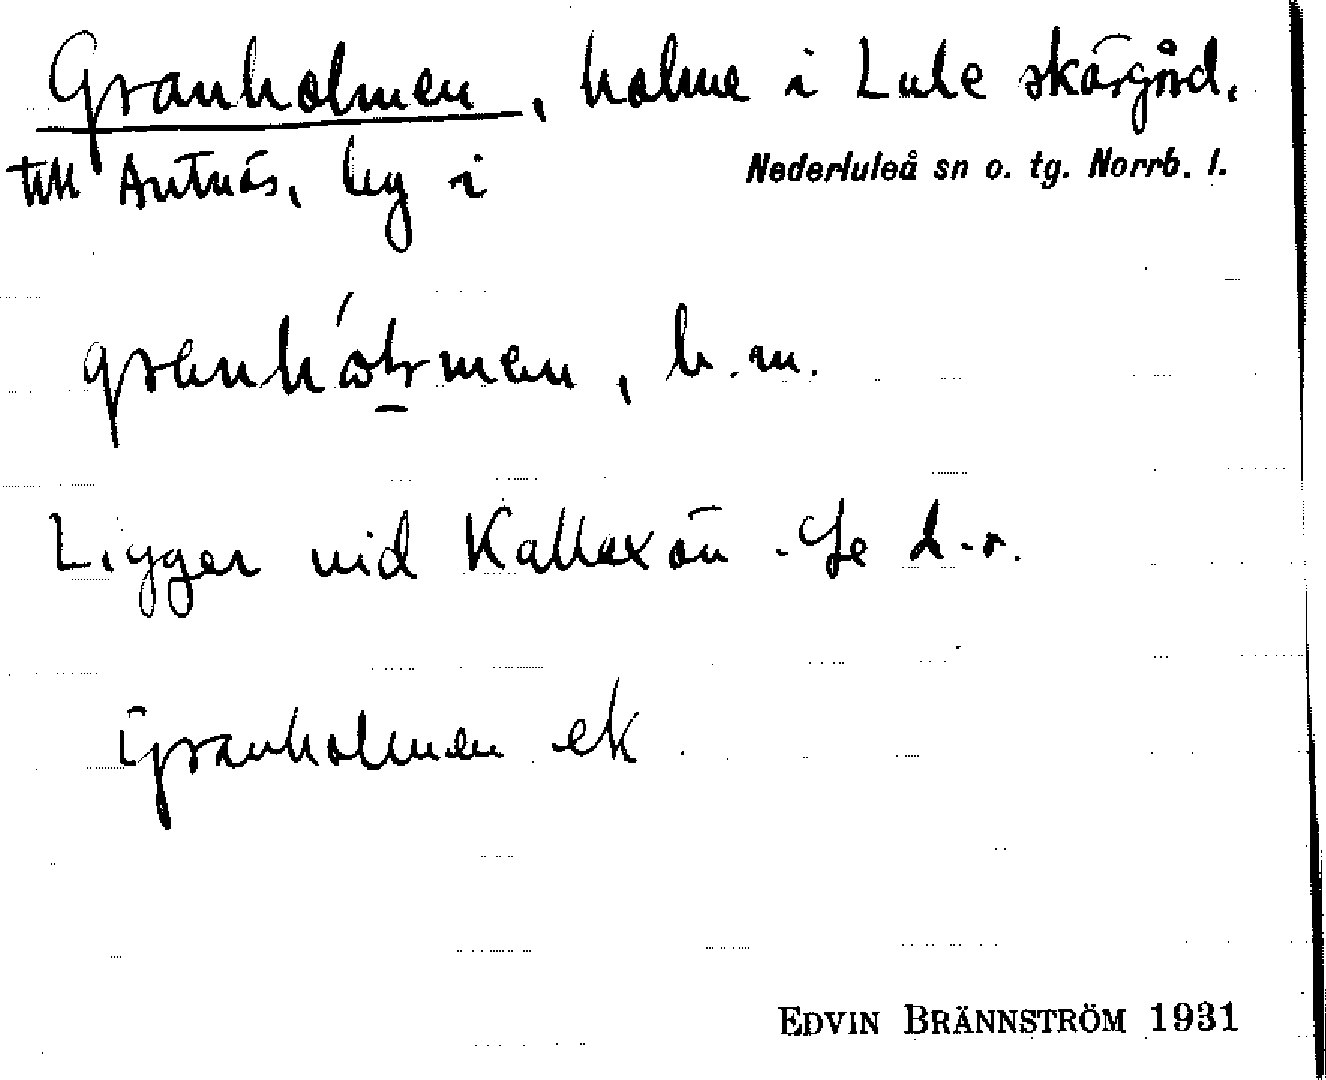 Granholmen, holme i Lule skärgård,
till Antnäs, leg i
Nederluleå sn o. tg. Norrb. l.
b. m.
Ligger vid Kallaxön. Se d. o.
Granholmen ek
EDVIN BRÄNNSTRÖM 1931